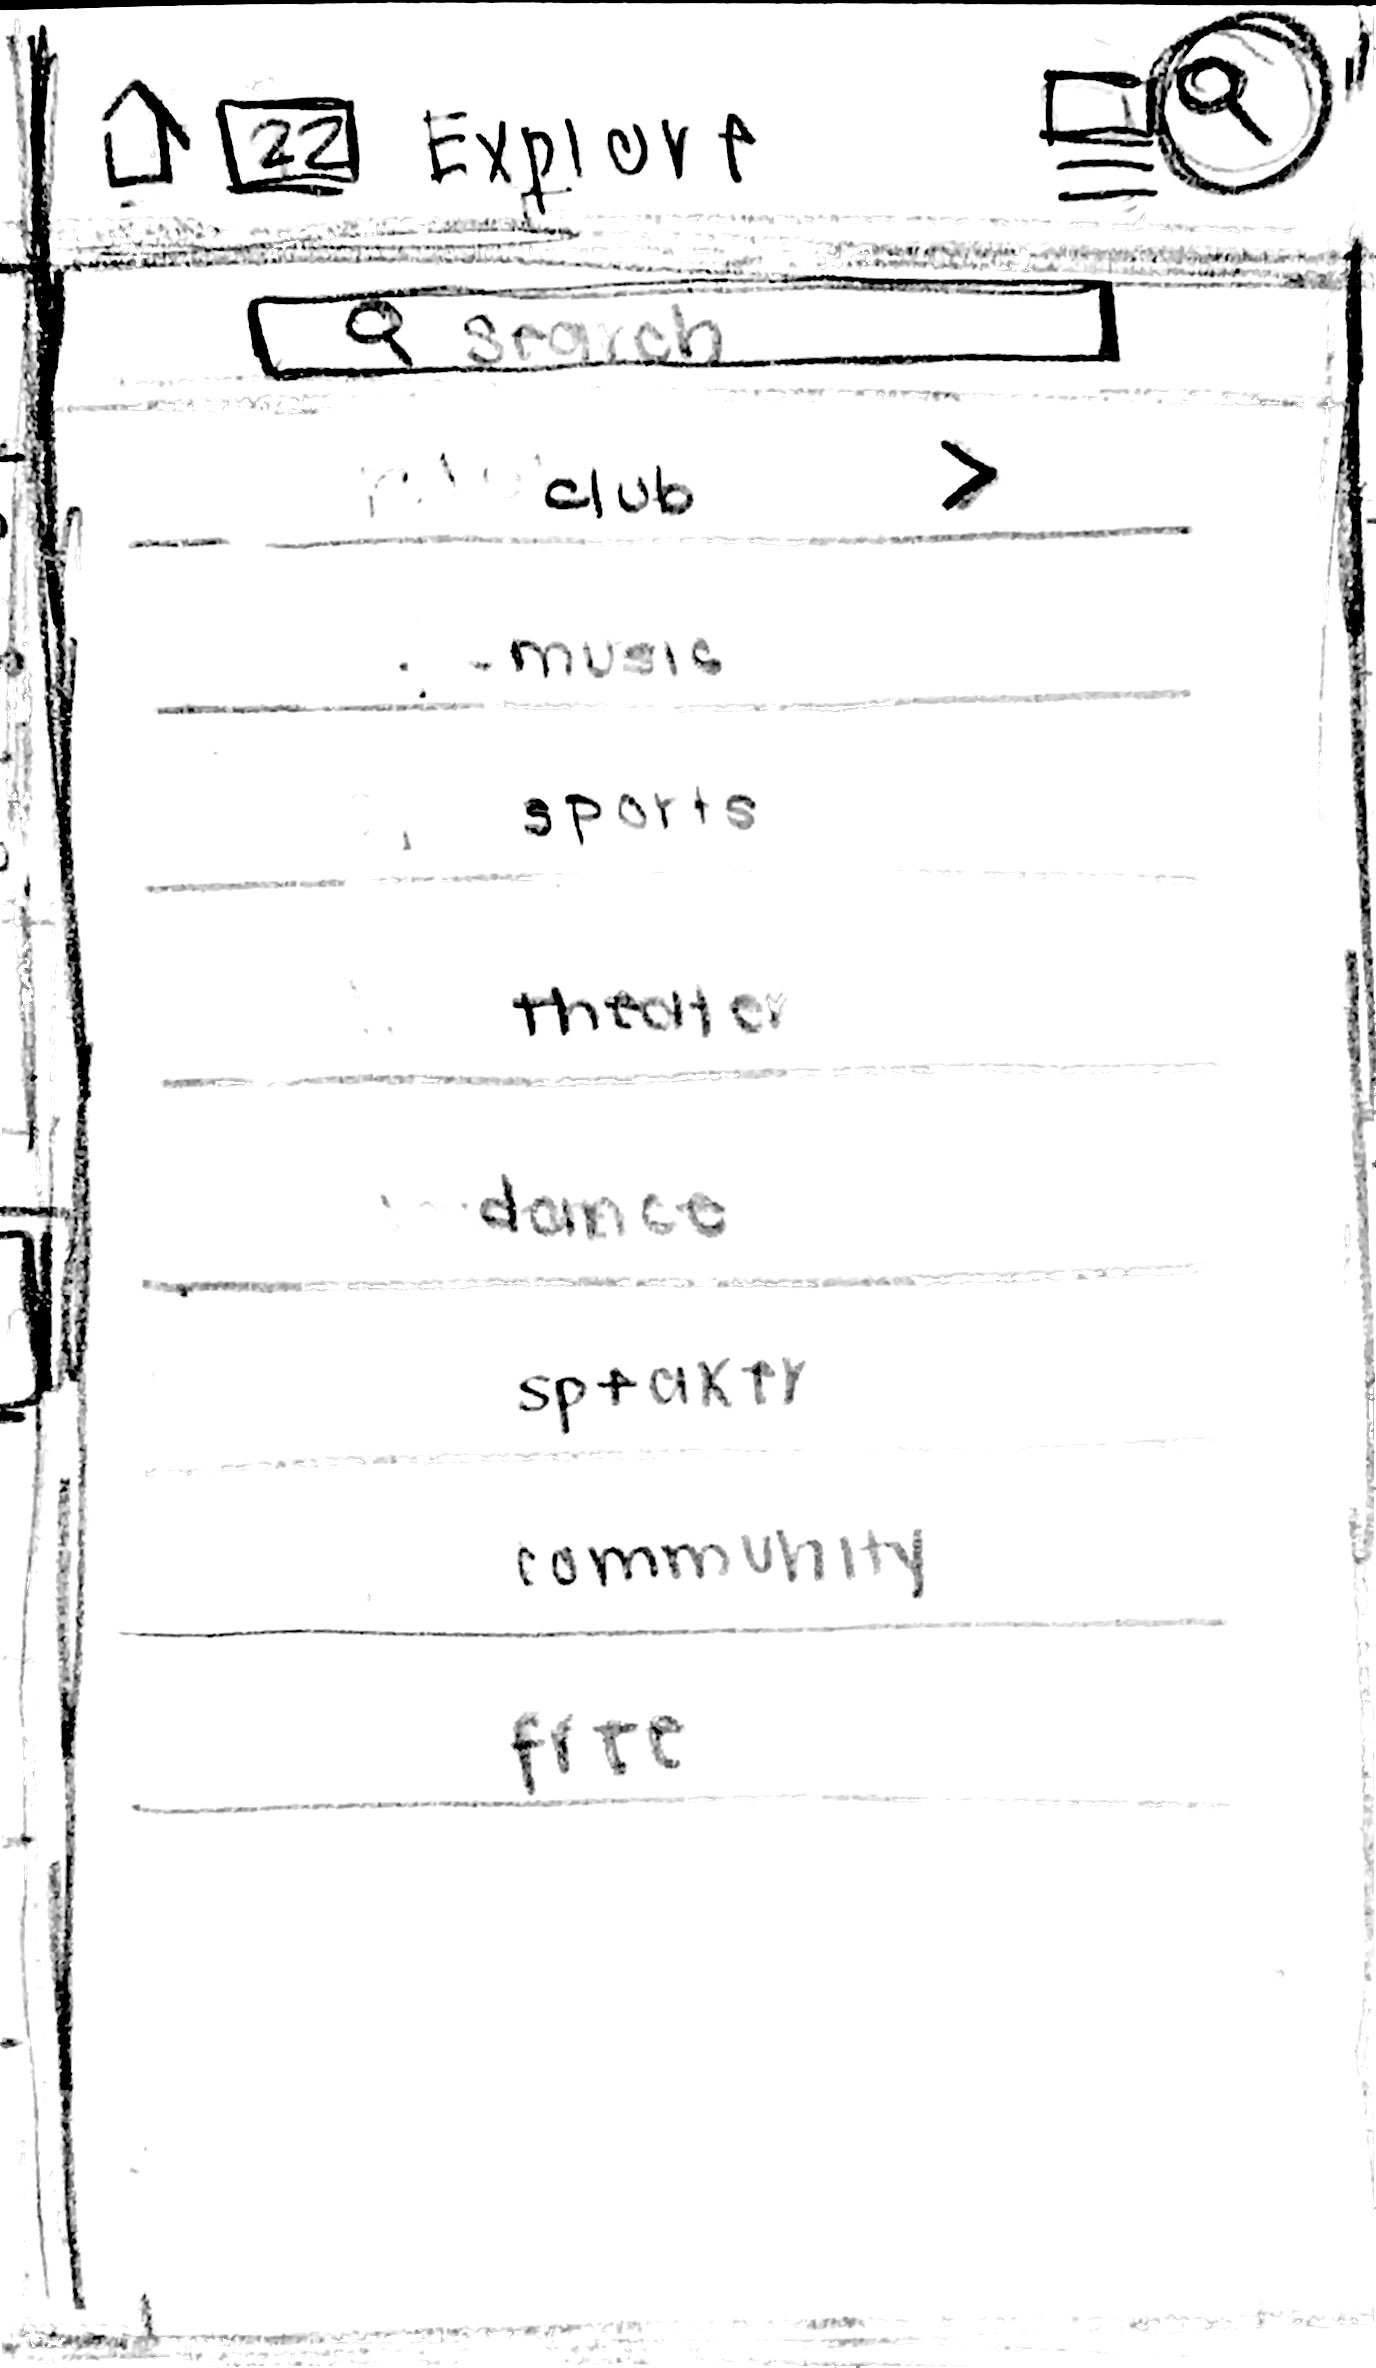 22 Explore
search
club >
music
sports
theater
dance
speaker
community
free